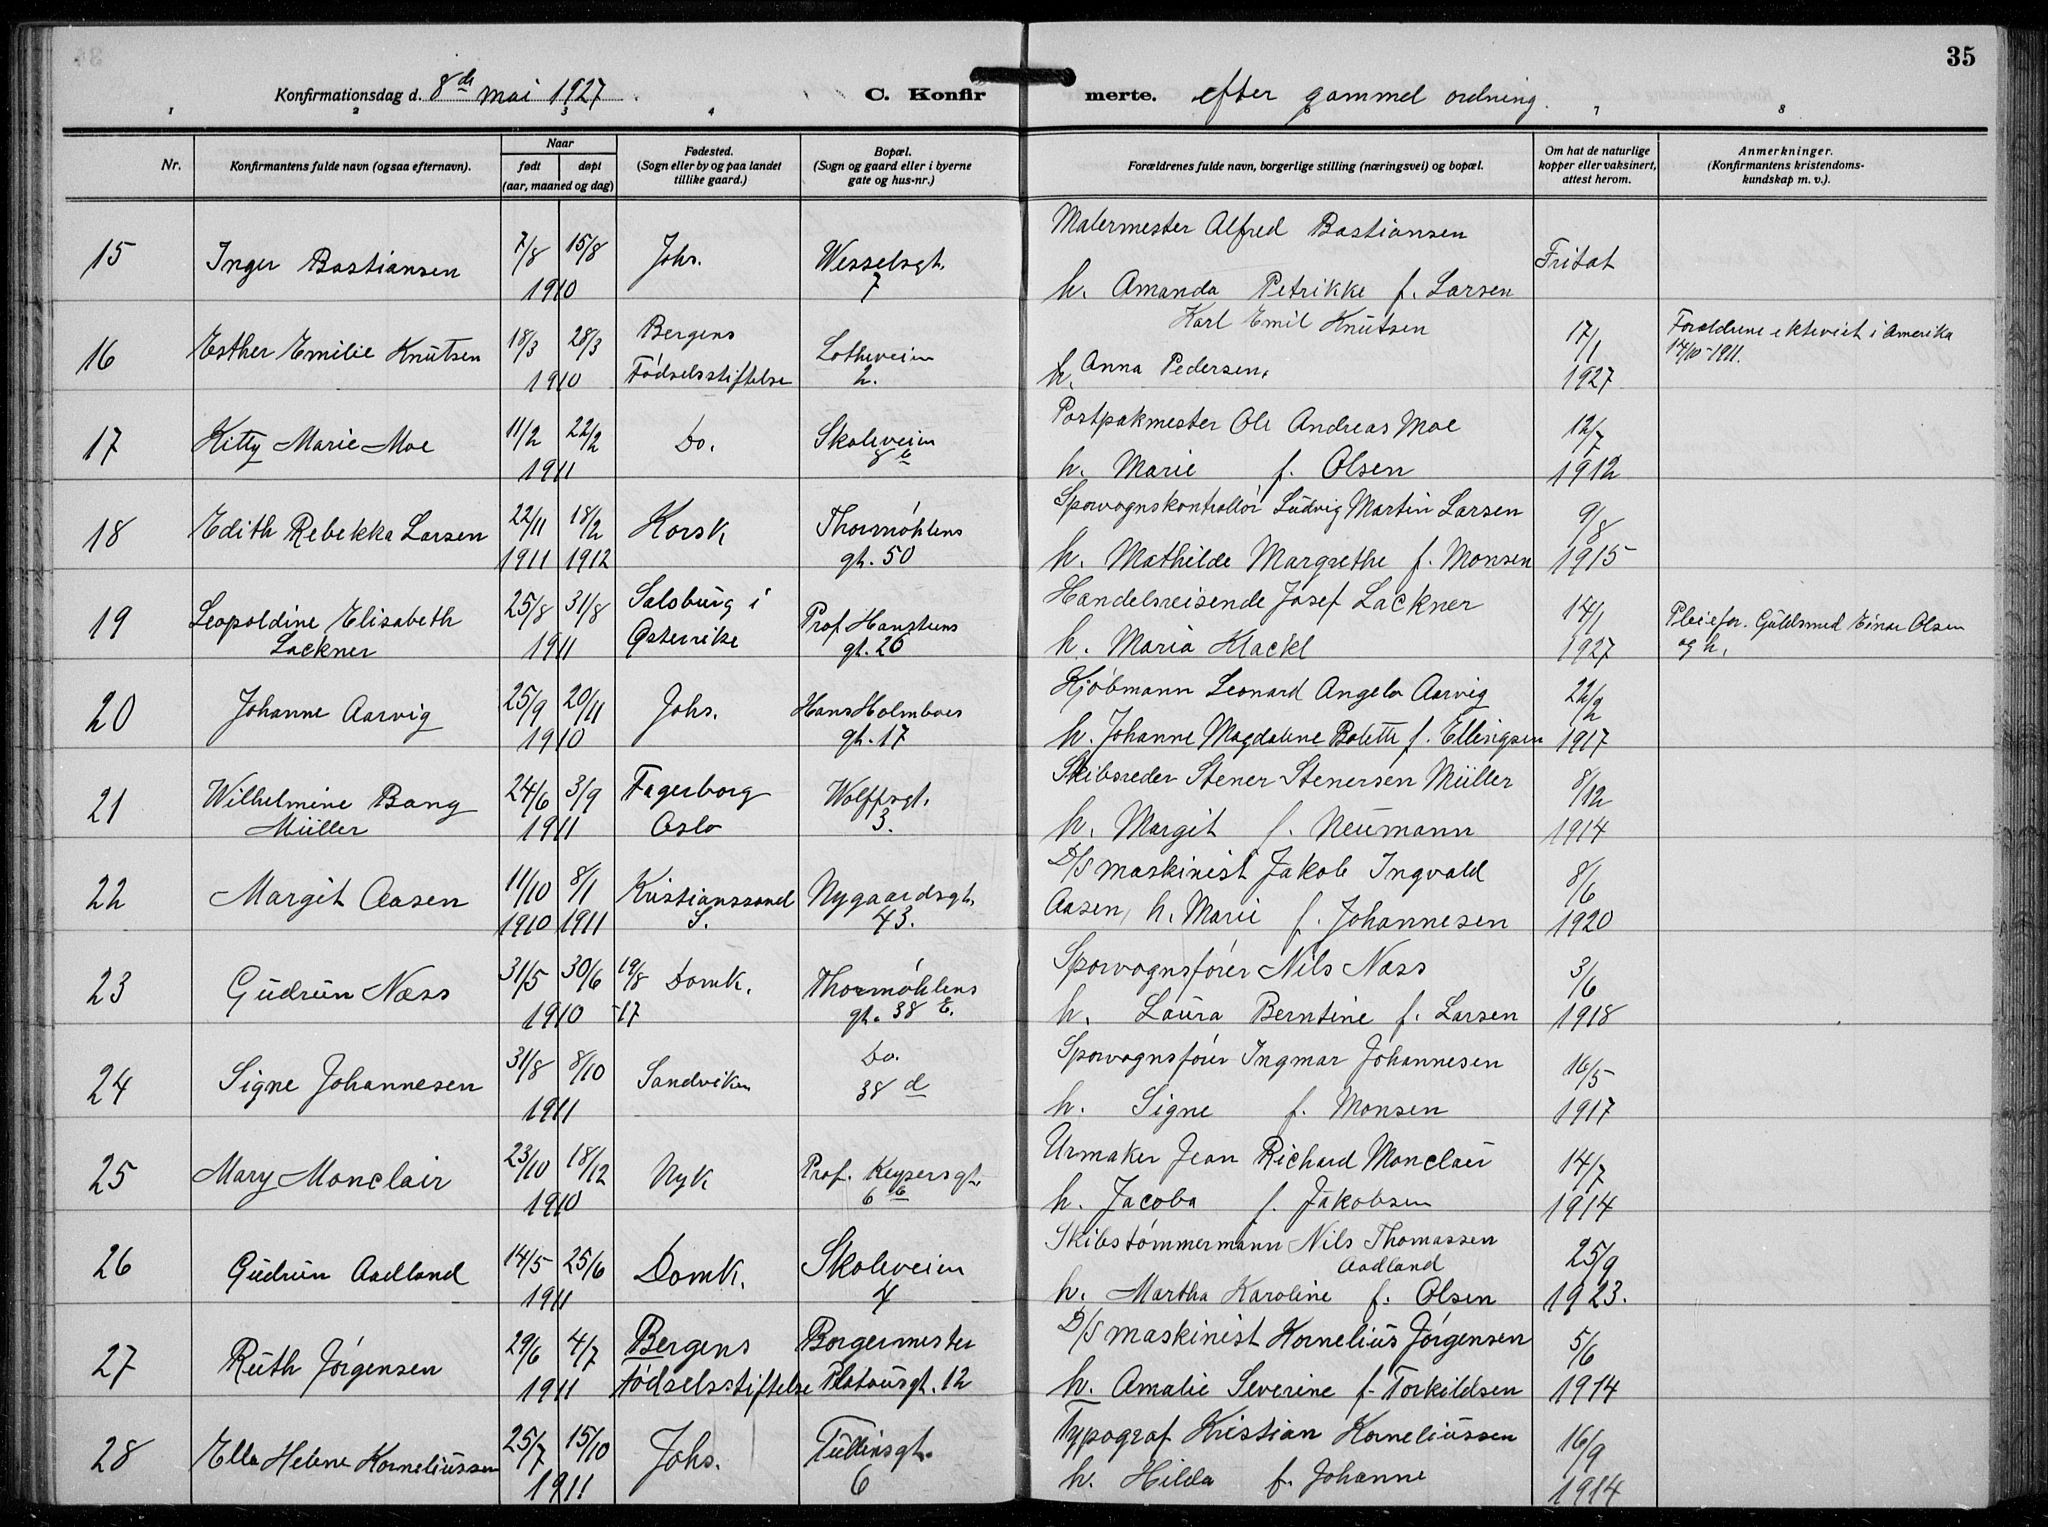 35
Konfirmationsdag d. 8de mai 1927. C. Konfirmerte. efter gammel ordning.
1 2 3 4 6 7 8
Nr. Konfirmantens fulde navn (ogsaa efternavn). Naar født døpt (aar, maaned og dag) Fødested. (Sogn eller by og paa landet tillike gaard.) Bopæl. (Sogn og gaard eller i byerne gate og hus-nr.) Forældrenes fulde navn, borgerlige stilling (næringsvei) og bopæl. Om hat de naturlige kopper eller vaksinert, attest herom. Anmerkninger. (Konfirmantens kristendoms-kundskap m. v.).
Malermester Alfred Bastiansen
15 Inger Bastiansen 7/8 15/8 Johs. Wesselsgt. Fritat
1910 7 h. Amanda Petrikke f. Larsen
16 Esther Emilie Knutsen 18/3 28/3 Bergens Lotheveien Karl Emil Knutsen 17/1 Forældrene ekteviet i Amerika
1910 Fødselsstiftelse 2. h. Anna Pedersen. 1927 14/10-1911.
17 Kitty Marie Moe 11/2 22/2 Do. Skoleveien Postpakmester Ole Andreas Moe 12/7
1911 8b h. Marie f. Olsen 1912
18 Edith Rebekka Larsen 22/11 18/2 Korsk Thormøhlens Sporvognskontrollør Ludvig Martin Larsen 9/8
1911 1912 gt. 50 h. Mathilde Margrethe f. Monsen 1915
19 Leopoldine Elisabeth 25/8 31/8 Salsburg i Prof Hansteens Handelsreisende Josef Lackner 14/1 Pleiefor. Guldsmed Einar Olsen
Lackner 1911 Østerrike gt. 26 h. Maria Klackl 1927 og h.
20 Johanne Aarvig 25/9 20/11 Johs. Hans Holmboes Kjøbmann Leonard Angelo Aarvig 22/2
1910 gt. 17 h. Johanne Magdalene Bolette f. Ellingsen 1917
21 Wilhelmine Bang 24/6 3/9 Fagerborg Wolffsgt. Skibsreder Stener Stenersen Müller 8/12
Müller 1911 Oslo 3. h. Margit f. Neumann 1914
22 Margit Aasen 11/10 8/1 Kristianssand Nygaardsgt. D/S maskinist Jakob Ingvald 8/6
1910 1911 S. 43. Aasen, h. Marie f. Johannesen 1920
23 Gudrun Næss 31/5 30/6 19/8 Domk. Thormøhlens Sporvognsfører Nils Næss 3/6
1910 -17 gt. 38 E. h. Laura Berntine f. Larsen 1918
24 Signe Johannesen 31/8 8/10 Sandviken Do. Sporvognsfører Ingmar Johannesen 16/5
1911 38 d h. Signe f. Monsen 1917
25 Mary Monclair 23/10 18/12 Nyk Prof. Keysersgt. Urmaker Jean Richard Monclair 14/7
1910 6 b h. Jacoba f. Jakobsen 1914
26 Gudrun Aadland 14/5 25/6 Domk. Skoleveien Skibstømmermann Nils Thomassen Aadland 25/9
1911 4 h. Martha Karoline f. Olsen 1923.
27 Ruth Jørgensen 29/6 4/7 Bergens Borgermester D/S maskinist Kornelius Jørgensen 5/6
1911 Fødselsstiftelse Platousgt. 12 h. Amalie Severine f. Torkildsen 1914
28 Ella Helene Korneliussen 25/7 15/10 Johs. Tullinsgt. Typograf Kristian Korneliussen 16/9
1911 6 h. Hilda f. Johanne 1914